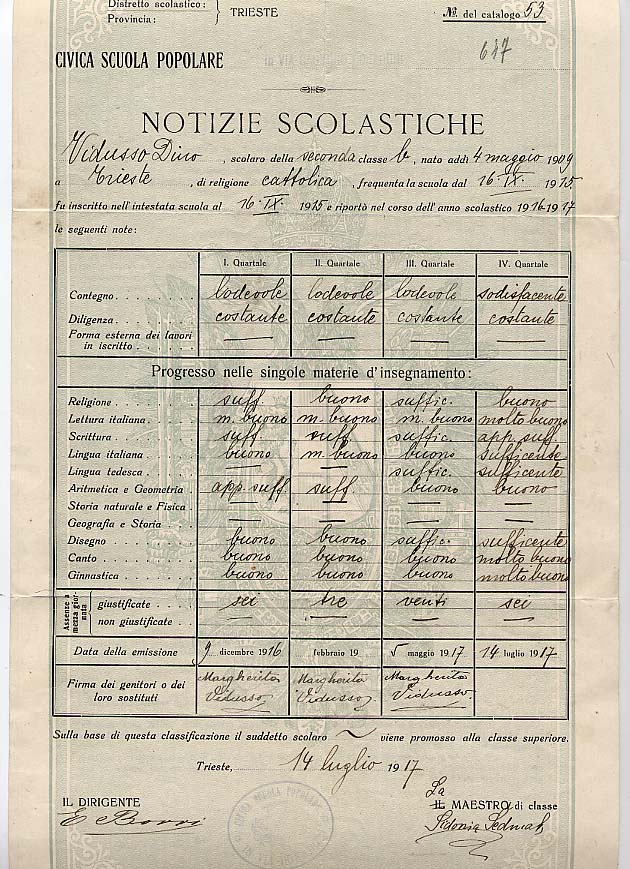 Distretto scolastico:
Provincia: } TRIESTE № del catalogo 53
CIVICA SCUOLA POPOLARE 647
NOTIZIE SCOLASTICHE
Vidusso Dino, scolaro della seconda classe b, nato addì 4 maggio 1909
a Trieste, di religione cattolica, frequenta la scuola dal 16-IX. 1915
fu inscritto nell'intestata scuola al 16-IX. 1915 e riportò nel corso dell'anno scolastico 1916-1917
le seguenti note:
I. Quartale II. Quartale III. Quartale IV. Quartale
Contegno lodevole lodevole lodevole sodisfacente
Diligenza costante costante costante costante
Forma esterna dei lavori
in iscritto — — — —
Progresso nelle singole materie d'insegnamento:
Religione suff. buono suffic. buono
Lettura italiana m. buono m. buono m. buono molto buono
Scrittura suff. suff. suffic. app. suff.
Lingua italiana buono m. buono buono sufficente
Lingua tedesca — — suffic. sufficente
Aritmetica e Geometria app. suff. suff. buono buono
Storia naturale e Fisica — — — —
Geografia e Storia — — — —
Disegno buono buono suffic. sufficente
Canto buono buono buono molto buono
Ginnastica buono buono buono molto buono
Assenze a mezza giornata
giustificate sei tre venti sei
non giustificate — — — —
Data della emissione 9 dicembre 1916 febbraio 19 5 maggio 1917 14 luglio 1917
Firma dei genitori o dei Margherita Margherita Margherita
loro sostituti Vidusso Vidusso Vidusso
Sulla base di questa classificazione il suddetto scolaro ~ viene promosso alla classe superiore.
Trieste, 14 luglio 1917
La
IL DIRIGENTE IL MAESTRO di classe
Sidonia Sedmak